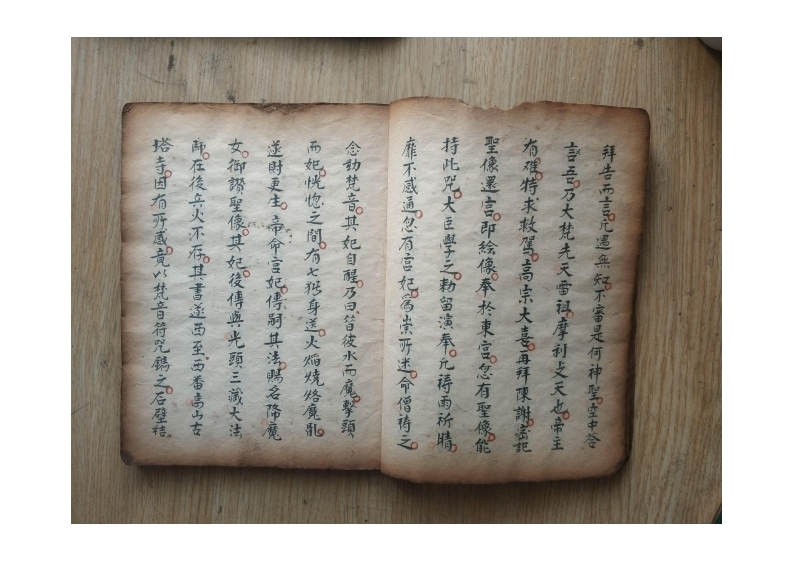 拜告而言凡愚無知不審是何神聖空中答
言吾乃大梵先天雷祖摩利支天也帝主
有難特求救駕高宗大喜再拜陳謝密記
聖像還宮即绘像奉於東宮忽有聖像能
持此咒大臣學之勅留演奉凡禱雨祈晴
靡不感通忽有宮妃為祟所迷命僧禱之
念動梵音其妃自醒乃曰昔彼水而魔擊頭
而妃恍惚之間有七猪身送火焰燒烙魔亂
遂財更生帝命宮妃傳嗣其法賜名降魔
女御讚聖像其妃後傳與光頭三藏大法
師在後兵火不存其書遂西至西番高山古
塔寺因有所感竟以梵音符咒鐫之石壁秸